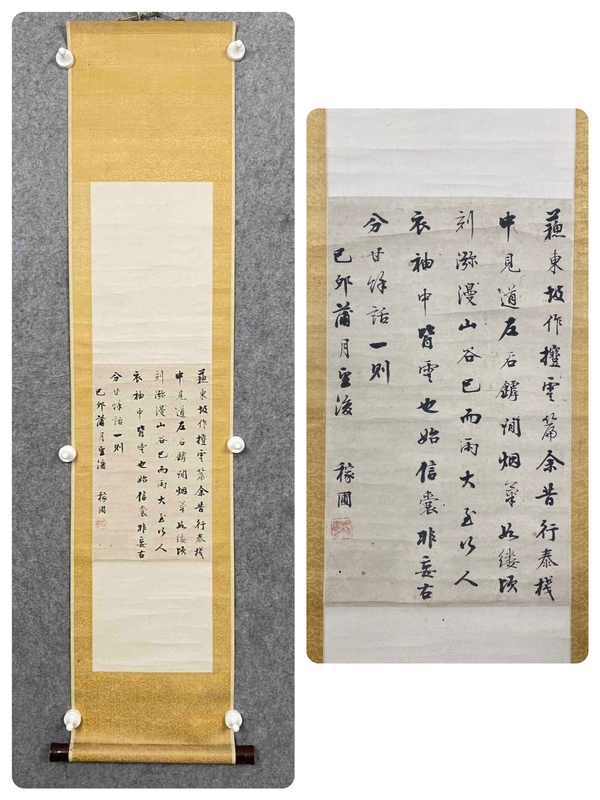 蘓東坡作攓雲篇余昔行秦棧
中見道左石罅間烟氣如縷頃
刻瀰漫山谷已而雨大至人
衣袖中皆雲也始信非妄右
分甘餘話一則
己卯蒲月望後 稼圃